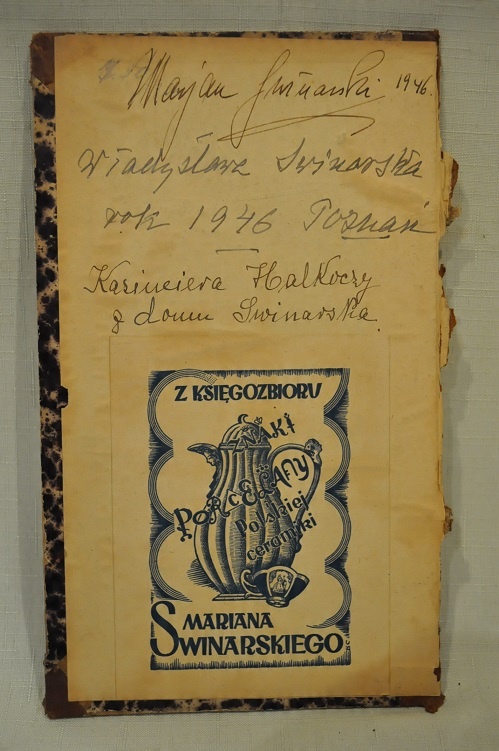 Marjan Swinarski 1946.
Władysława Swinarska
rok 1946 Poznań
Kazimiera Halkoczy
z domu Swinarska
Z KSIĘGOZBIORU
ZNAKI
PORCELANY
Polskiej
ceramiki
MARIANA
SWINARSKIEGO